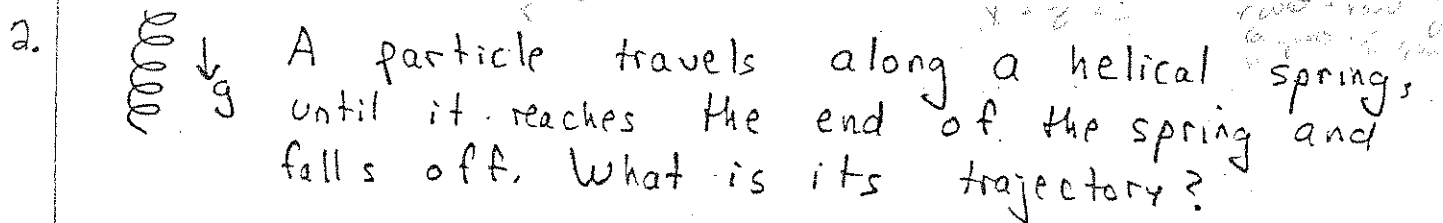 2. A particle travels along a helical spring,
g until it reaches the end of the spring and
falls off. What is its trajectory?